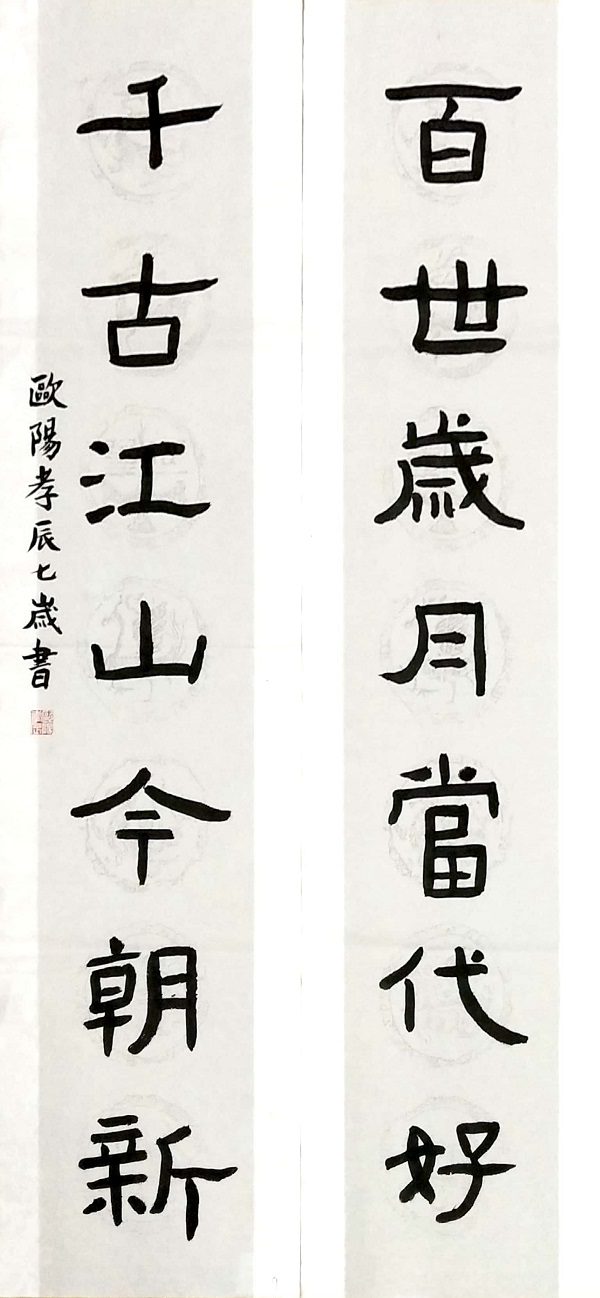 百世歲月當代好
千古江山今朝新
歐陽孝辰七歲書